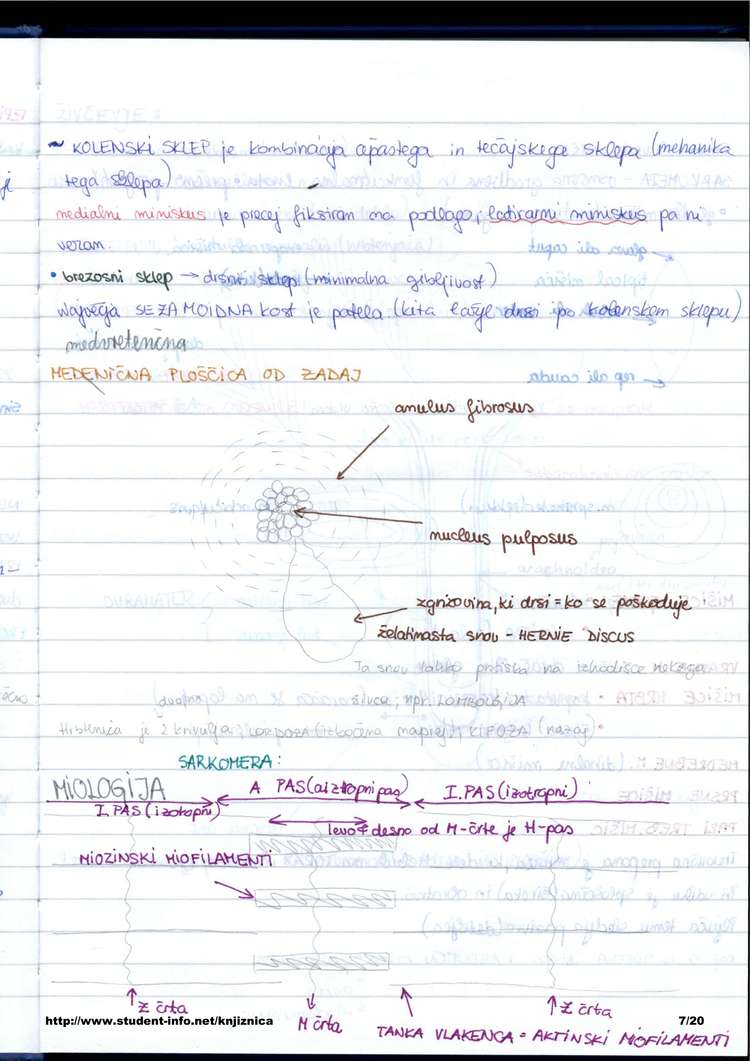 ~ KOLENSKI SKLEP je kombinacija čepastega in tečajskega sklepa (mehanika
tega sklepa)
medialni miniskus je precej fiksiran na podlago, latirarni miniskus pa ni
vezan.
• brezosni sklep → drsni sklep (minimalna gibljivost)
Največja SEZAMOIDNA kost je patela (kita lažje drsi po kolenskem sklepu)
medvretenčna
MEDENIČNA PLOŠČICA OD ZADAJ
anulus fibrosus
nucleus pulposus
zgnizovina, ki drsi = ko se poškoduje
želatinasta snov - HERNIE DISCUS
Ta snov lahko pritiska na izhodišče nekega
živca; npr. LOMBOLGIJA
Hrbtenica je 2 krivulja: LORDOZA (izbočina naprej), KIFOZA (nazaj)
SARKOMERA:
MIOLOGIJA
A PAS (aiztropni pas)
I. PAS (izotropni)
I. PAS (izotopni)
levo & desno od M-črte je H-pas
MIOZINSKI MIOFILAMENTI
Z črta
M črta
Z črta
TANKA VLAKENCA = AKTINSKI MIOFILAMENTI
http://www.student-info.net/knjiznica
7/20